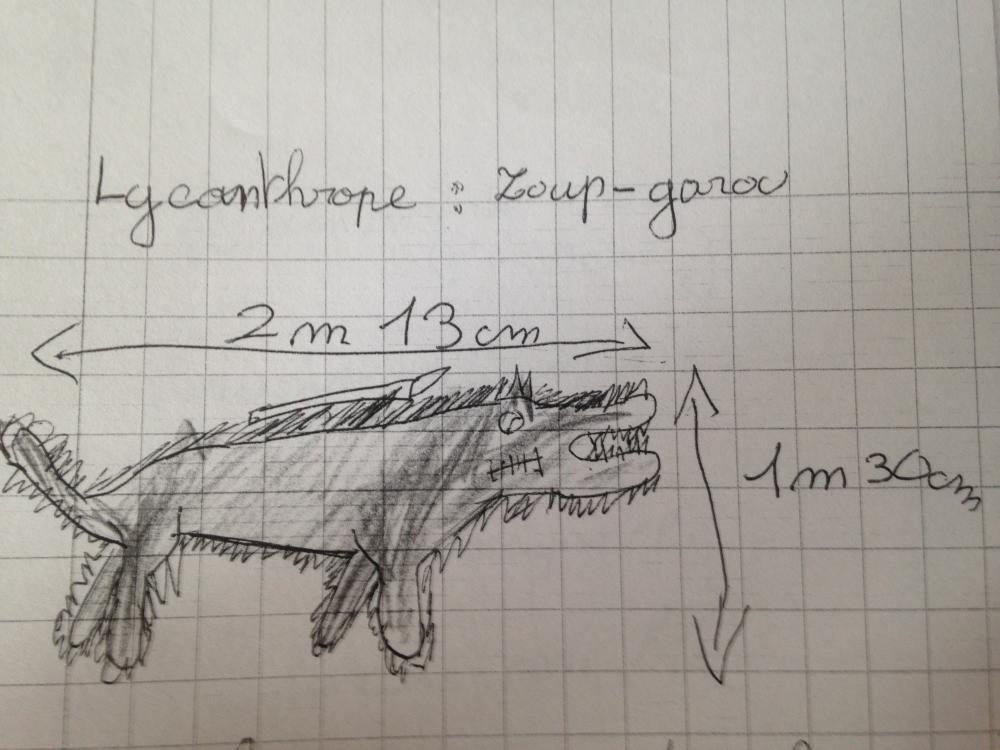 Lycanthrope : Loup-garou
2 m 13 cm
1 m 30 cm